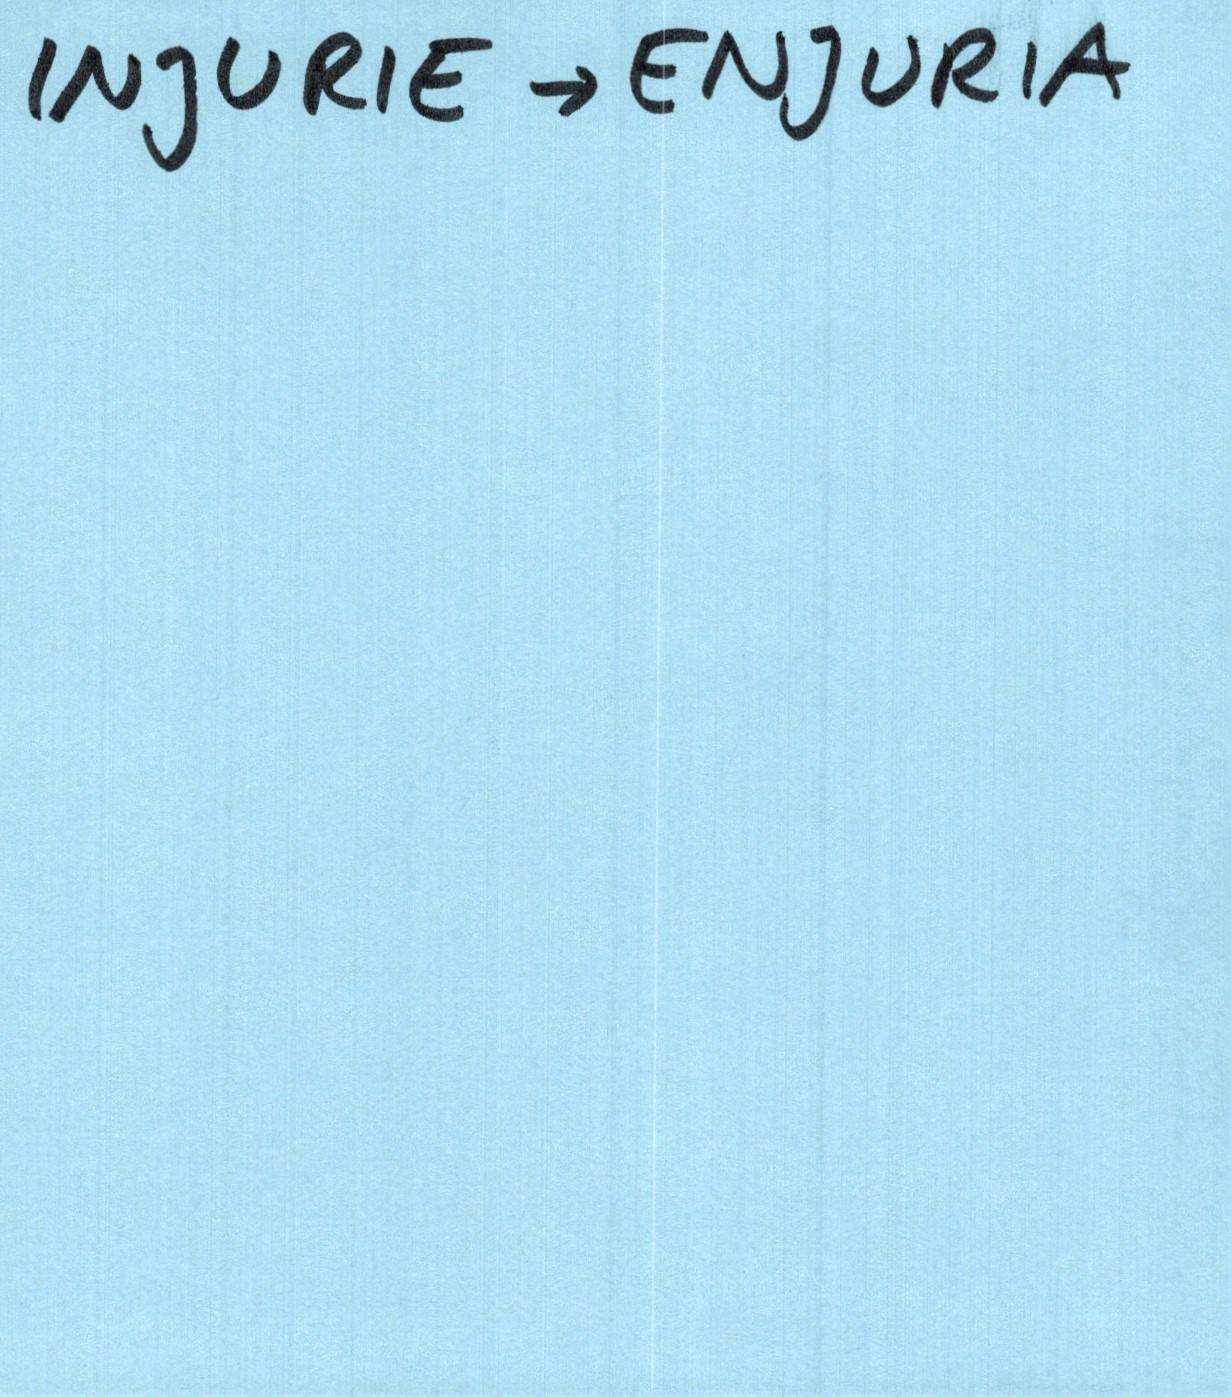 INJURIE → ENJURIA